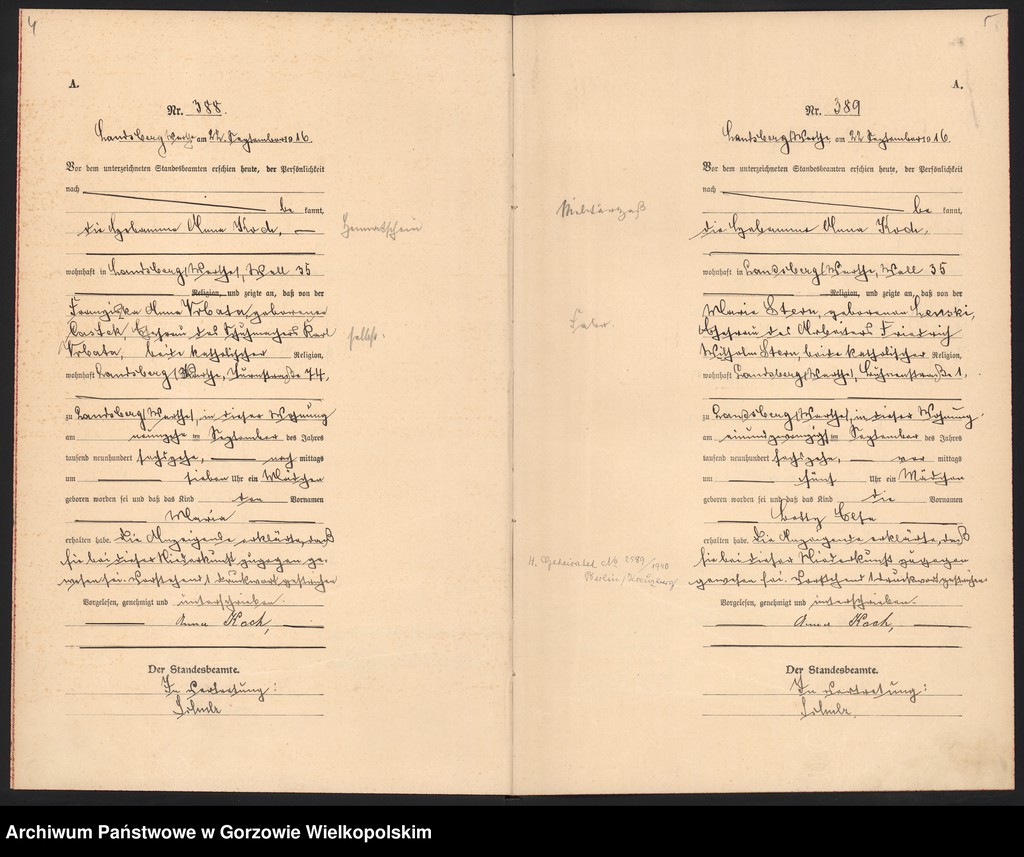 4
A.
Nr. 388.
Landsberg Warthe am 22. September 1916.
Vor dem unterzeichneten Standesbeamten erschien heute, der Persönlichkeit
nach
be kannt,
die Hebamme Anna Koch,
Heimatschein
wohnhaft in Landsberg/Warthe, Wall 35
Religion, und zeigte an, daß von der
Franziska Anna Urbata, geborenen
Ehefrau des Schuhmachers Karl
selbst.
Urbata, beide katholischer Religion,
wohnhaft Landsberg/Warthe, Turnstraße 74,
zu Landsberg/Warthe, in dieser Wohnung
am neunzehn ten September des Jahres
tausend neunhundert sechszehn, nach mittags
um sieben Uhr ein Mädchen
geboren worden sei und daß das Kind den Vornamen
Maria
erhalten habe. Die Anzeigende erklärte, daß
sie bei dieser Niederkunft zugegen ge-
wesen sei. Vorstehend 1 Druckwort gestrichen
Vorgelesen, genehmigt und unterschrieben.
Anna Koch,
Der Standesbeamte.
In Vertretung:
5
A.
Nr. 389
Landsberg/Warthe am 22 September 1916.
Vor dem unterzeichneten Standesbeamten erschien heute, der Persönlichkeit
nach
be kannt,
Militärpaß
die Hebamme Anna Koch,
wohnhaft in Landsberg/Warthe, Wall 35
Religion, und zeigte an, daß von der
Marie Stern, geborenen Lewski,
Ehefrau des Arbeiters Friedrich
Wilhelm Stern, beide katholischer Religion,
wohnhaft Landsberg/Warthe, Bühnenstraße 1,
zu Landsberg/Warthe, in dieser Wohnung
am einundzwanzigsten September des Jahres
tausend neunhundert sechszehn, vor mittags
um fünf Uhr ein Mädchen
geboren worden sei und daß das Kind die Vornamen
Betty Else
erhalten habe. Die Anzeigende erklärte, daß
sie bei dieser Niederkunft zugegen
gewesen sei. Vorstehend 1 Druckwort gestrichen
H. Geheiratet No 2589/1940
Berlin/Kreuzberg
Vorgelesen, genehmigt und unterschrieben.
Anna Koch,
Der Standesbeamte.
In Vertretung:
Archiwum Państwowe w Gorzowie Wielkopolskim